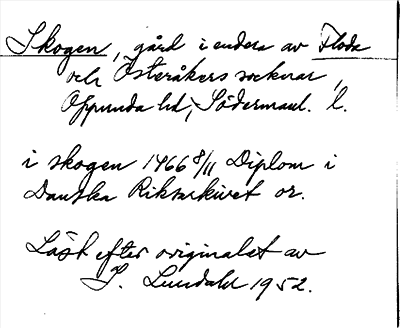 Skogen, gård i endera av Floda
och Österåkers socknar,
Oppunda hd, Södermanl. l.
i skogen 1466 8/11 Diplom i
Danska Riksarkivet or.
Läst efter originalet av
I. Lundahl 1952.